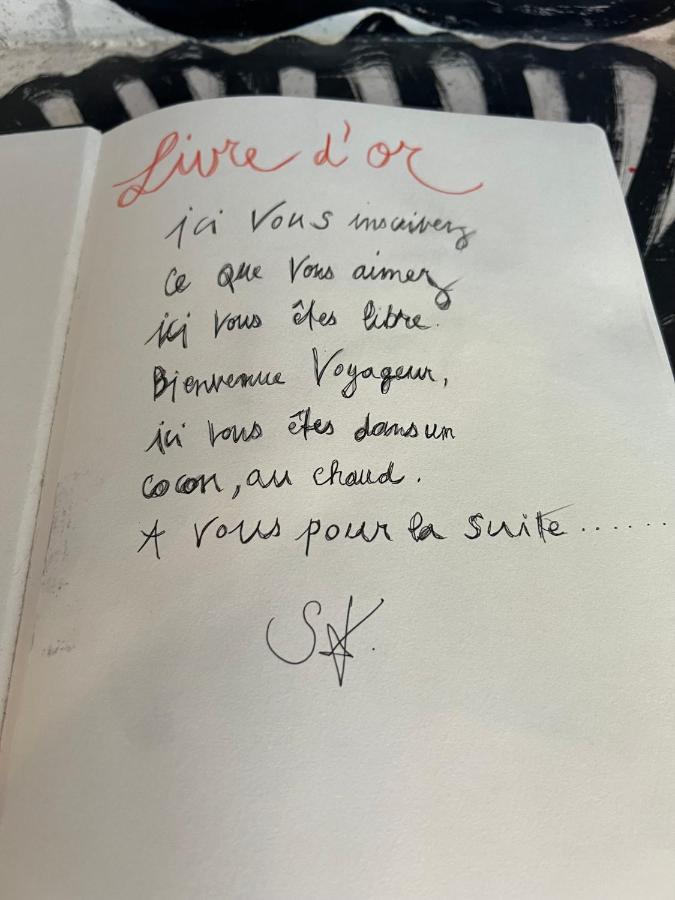 Livre d'or
ici Vous inscrivez
ce que Vous aimez
ici Vous êtes libre.
Bienvenue Voyageur,
ici vous êtes dans un
cocon, au chaud.
A vous pour la suite......